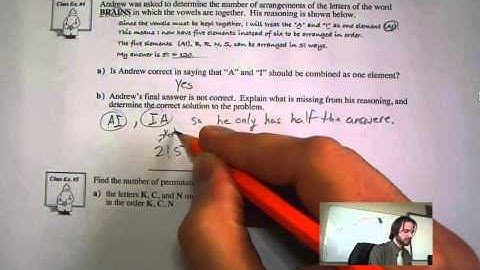 Class Ex. #4
Andrew was asked to determine the number of arrangements of the letters of the word
BRAINS in which the vowels are together. His reasoning is shown below.
Since the vowels must be kept together, I will treat the "A" and "I" as one element (AI)
This means I now have five elements instead of six to be arranged in order.
The five elements (AI), B, R, N, S, can be arranged in 5! ways.
My answer is 5! = 120.
a) Is Andrew correct in saying that "A" and "I" should be combined as one element?
Yes
b) Andrew's final answer is not correct. Explain what is missing from his reasoning, and
determine the correct solution to the problem.
AI , IA so he only has half the answere.
2!5
Class Ex. #5
Find the number of permutat
a) the letters K, C, and N
in the order K, C, N